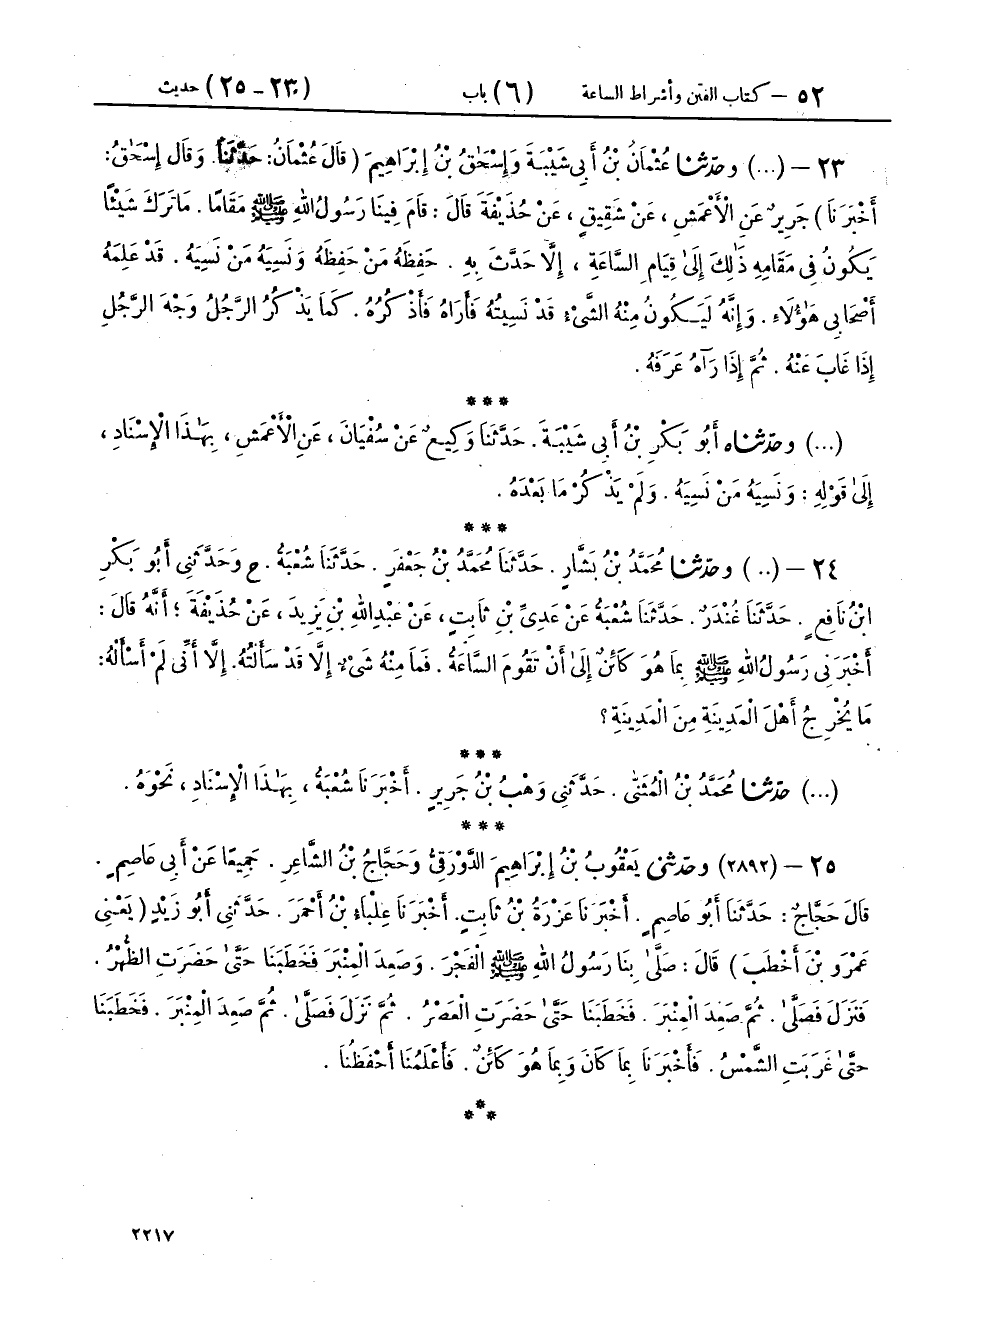 ٥٢ – كتاب الفتن وأشراط الساعة (٦) باب (٢٣ – ٢٥) حديث
٢٣ – (...) وحدّثنا عُثْمَانُ بْنُ أَبِي شَيْبَةَ وَإِسْحَٰقُ بْنُ إِبْرَاهِيمَ (قَالَ عُثْمَانُ: حَدَّثَنَا. وَقَالَ إِسْحَٰقُ:
أَخْبَرَنَا) جَرِيرٌ عَنِ الْأَعْمَشِ، عَنْ شَقِيقٍ، عَنْ حُذَيْفَةَ قَالَ: قَامَ فِينَا رَسُولُ اللهِ ﷺ مَقَامًا. مَا تَرَكَ شَيْئًا
يَكُونُ فِي مَقَامِهِ ذَٰلِكَ إِلَىٰ قِيَامِ السَّاعَةِ، إِلَّا حَدَّثَ بِهِ. حَفِظَهُ مَنْ حَفِظَهُ وَنَسِيَهُ مَنْ نَسِيَهُ. قَدْ عَلِمَهُ
أَصْحَابِي هَٰؤُلَاءِ. وَإِنَّهُ لَيَكُونُ مِنْهُ الشَّيْءُ قَدْ نَسِيتُهُ فَأَرَاهُ فَأَذْكُرُهُ. كَمَا يَذْكُرُ الرَّجُلُ وَجْهَ الرَّجُلِ
إِذَا غَابَ عَنْهُ. ثُمَّ إِذَا رَآهُ عَرَفَهُ.
***
(...) وحدّثناه أَبُو بَكْرِ بْنُ أَبِي شَيْبَةَ. حَدَّثَنَا وَكِيعٌ عَنْ سُفْيَانَ، عَنِ الْأَعْمَشِ، بِهَٰذَا الْإِسْنَادِ،
إِلَىٰ قَوْلِهِ: وَنَسِيَهُ مَنْ نَسِيَهُ. وَلَمْ يَذْكُرْ مَا بَعْدَهُ.
***
٢٤ – (..) وحدّثنا مُحَمَّدُ بْنُ بَشَّارٍ. حَدَّثَنَا مُحَمَّدُ بْنُ جَعْفَرٍ. حَدَّثَنَا شُعْبَةُ. ح وَحَدَّثَنِي أَبُو بَكْرِ
ابْنُ نَافِعٍ. حَدَّثَنَا غُنْدَرٌ. حَدَّثَنَا شُعْبَةُ عَنْ عَدِيِّ بْنِ ثَابِتٍ، عَنْ عَبْدِ اللهِ بْنِ يَزِيدَ، عَنْ حُذَيْفَةَ؛ أَنَّهُ قَالَ:
أَخْبَرَنِي رَسُولُ اللهِ ﷺ بِمَا هُوَ كَائِنٌ إِلَىٰ أَنْ تَقُومَ السَّاعَةُ. فَمَا مِنْهُ شَيْءٌ إِلَّا قَدْ سَأَلْتُهُ. إِلَّا أَنِّي لَمْ أَسْأَلْهُ:
مَا يُخْرِجُ أَهْلَ الْمَدِينَةِ مِنَ الْمَدِينَةِ؟
***
(...) حدّثنا مُحَمَّدُ بْنُ الْمُثَنَّىٰ. حَدَّثَنِي وَهْبُ بْنُ جَرِيرٍ. أَخْبَرَنَا شُعْبَةُ، بِهَٰذَا الْإِسْنَادِ، نَحْوَهُ.
***
٢٥ – (٢٨٩٢) وحدّثني يَعْقُوبُ بْنُ إِبْرَاهِيمَ الدَّوْرَقِيُّ وَحَجَّاجُ بْنُ الشَّاعِرِ. جَمِيعًا عَنْ أَبِي عَاصِمٍ.
قَالَ حَجَّاجٌ: حَدَّثَنَا أَبُو عَاصِمٍ. أَخْبَرَنَا عَزْرَةُ بْنُ ثَابِتٍ. أَخْبَرَنَا عِلْبَاءُ بْنُ أَحْمَرَ. حَدَّثَنِي أَبُو زَيْدٍ (يَعْنِي
عَمْرَو بْنَ أَخْطَبَ) قَالَ: صَلَّىٰ بِنَا رَسُولُ اللهِ ﷺ الْفَجْرَ. وَصَعِدَ الْمِنْبَرَ فَخَطَبَنَا حَتَّىٰ حَضَرَتِ الظُّهْرُ.
فَنَزَلَ فَصَلَّىٰ. ثُمَّ صَعِدَ الْمِنْبَرَ. فَخَطَبَنَا حَتَّىٰ حَضَرَتِ الْعَصْرُ. ثُمَّ نَزَلَ فَصَلَّىٰ. ثُمَّ صَعِدَ الْمِنْبَرَ. فَخَطَبَنَا
حَتَّىٰ غَرَبَتِ الشَّمْسُ. فَأَخْبَرَنَا بِمَا كَانَ وَبِمَا هُوَ كَائِنٌ. فَأَعْلَمُنَا أَحْفَظُنَا.
***
٢٢١٧